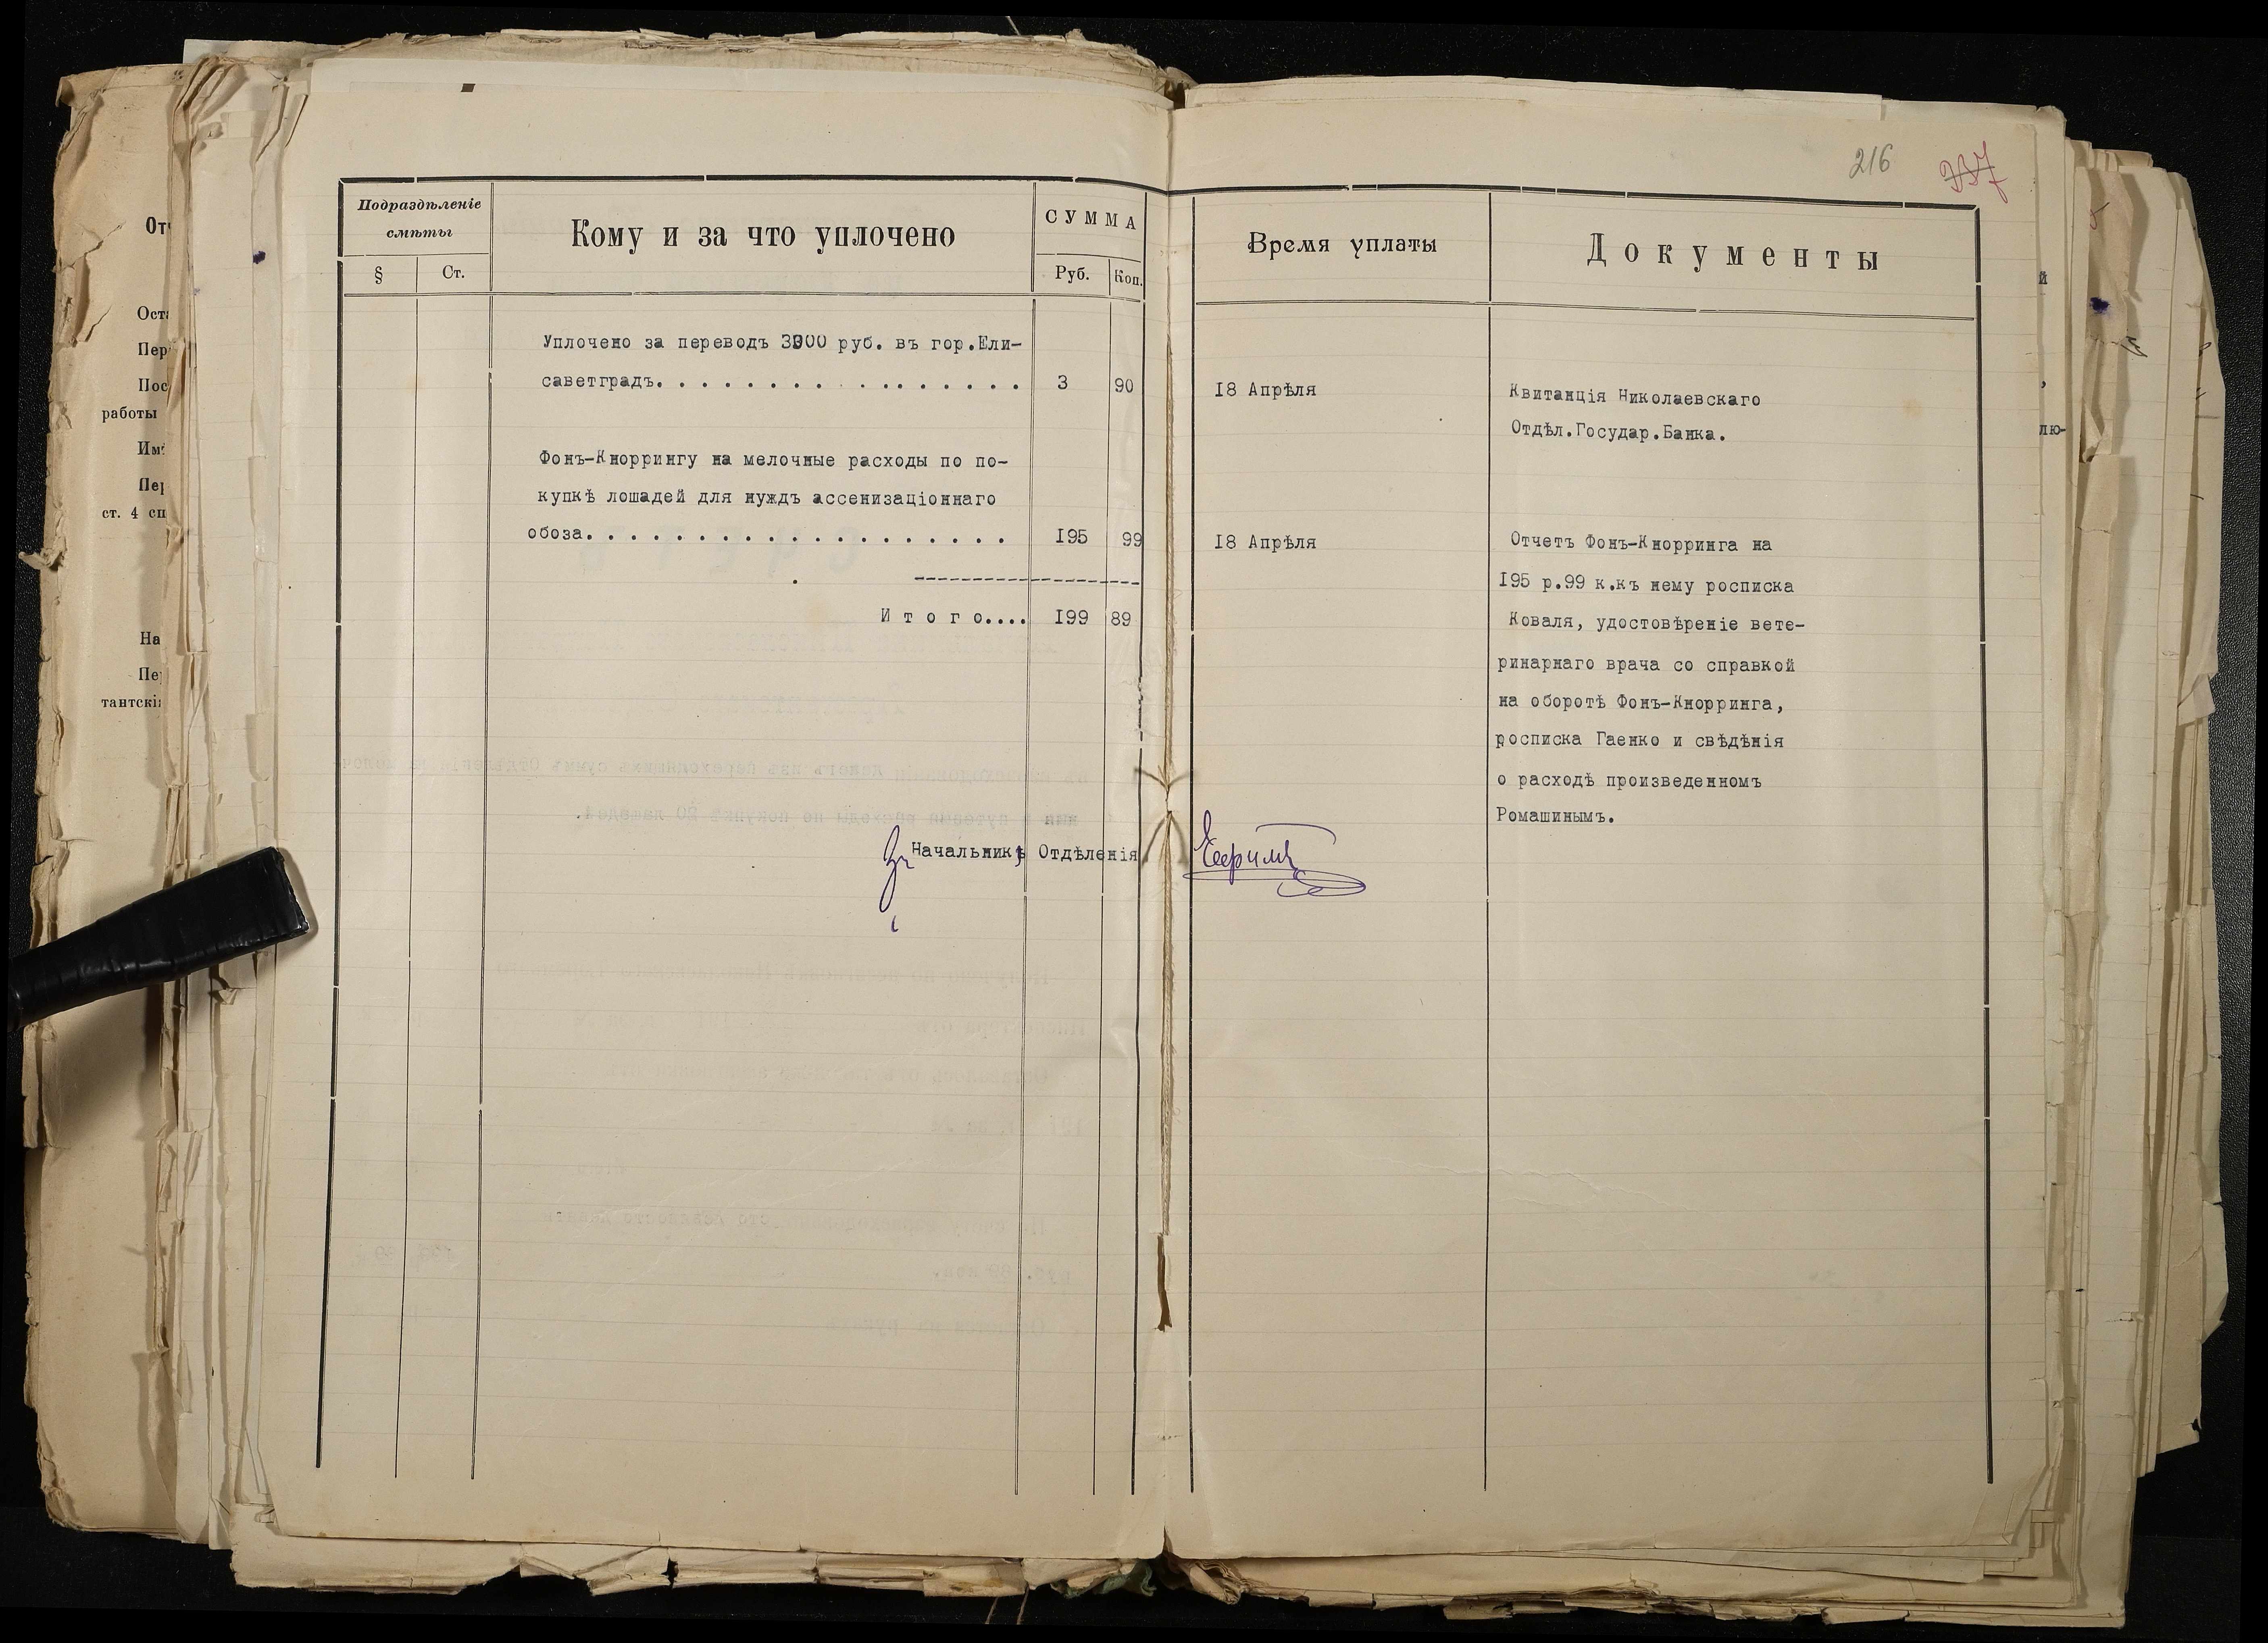 216
337
Подраздѣленіе
смѣты
§ Ст.
Кому и за что уплочено
СУММА
Руб. Коп.
Время уплаты
Документы
Уплочено за переводъ 3900 руб. въ гор.Ели-
саветградъ. . . . . . . . . . . . . . . . . 3 90
18 Апрѣля
Квитанція Николаевскаго
Отдѣл.Государ.Банка.
Фонъ-Кноррингу на мелочные расходы по по-
купкѣ лошадей для нуждъ ассенизаціоннаго
обоза. . . . . . . . . . . . . . . . . . . 195 99
18 Апрѣля
Отчетъ Фонъ-Кнорринга на
195 р.99 к.къ нему росписка
Коваля, удостовѣреніе вете-
ринарнаго врача со справкой
на оборотѣ Фонъ-Кнорринга,
росписка Гаенко и свѣдѣнія
о расходѣ произведенномъ
Ромашинымъ.
И т о г о.... 199 89
За Начальника Отдѣленія
От
Ост
Пер
Пос
работы
Им
Пер
ст. 4 сп
На
Пе
тантскі
й
,
лю-